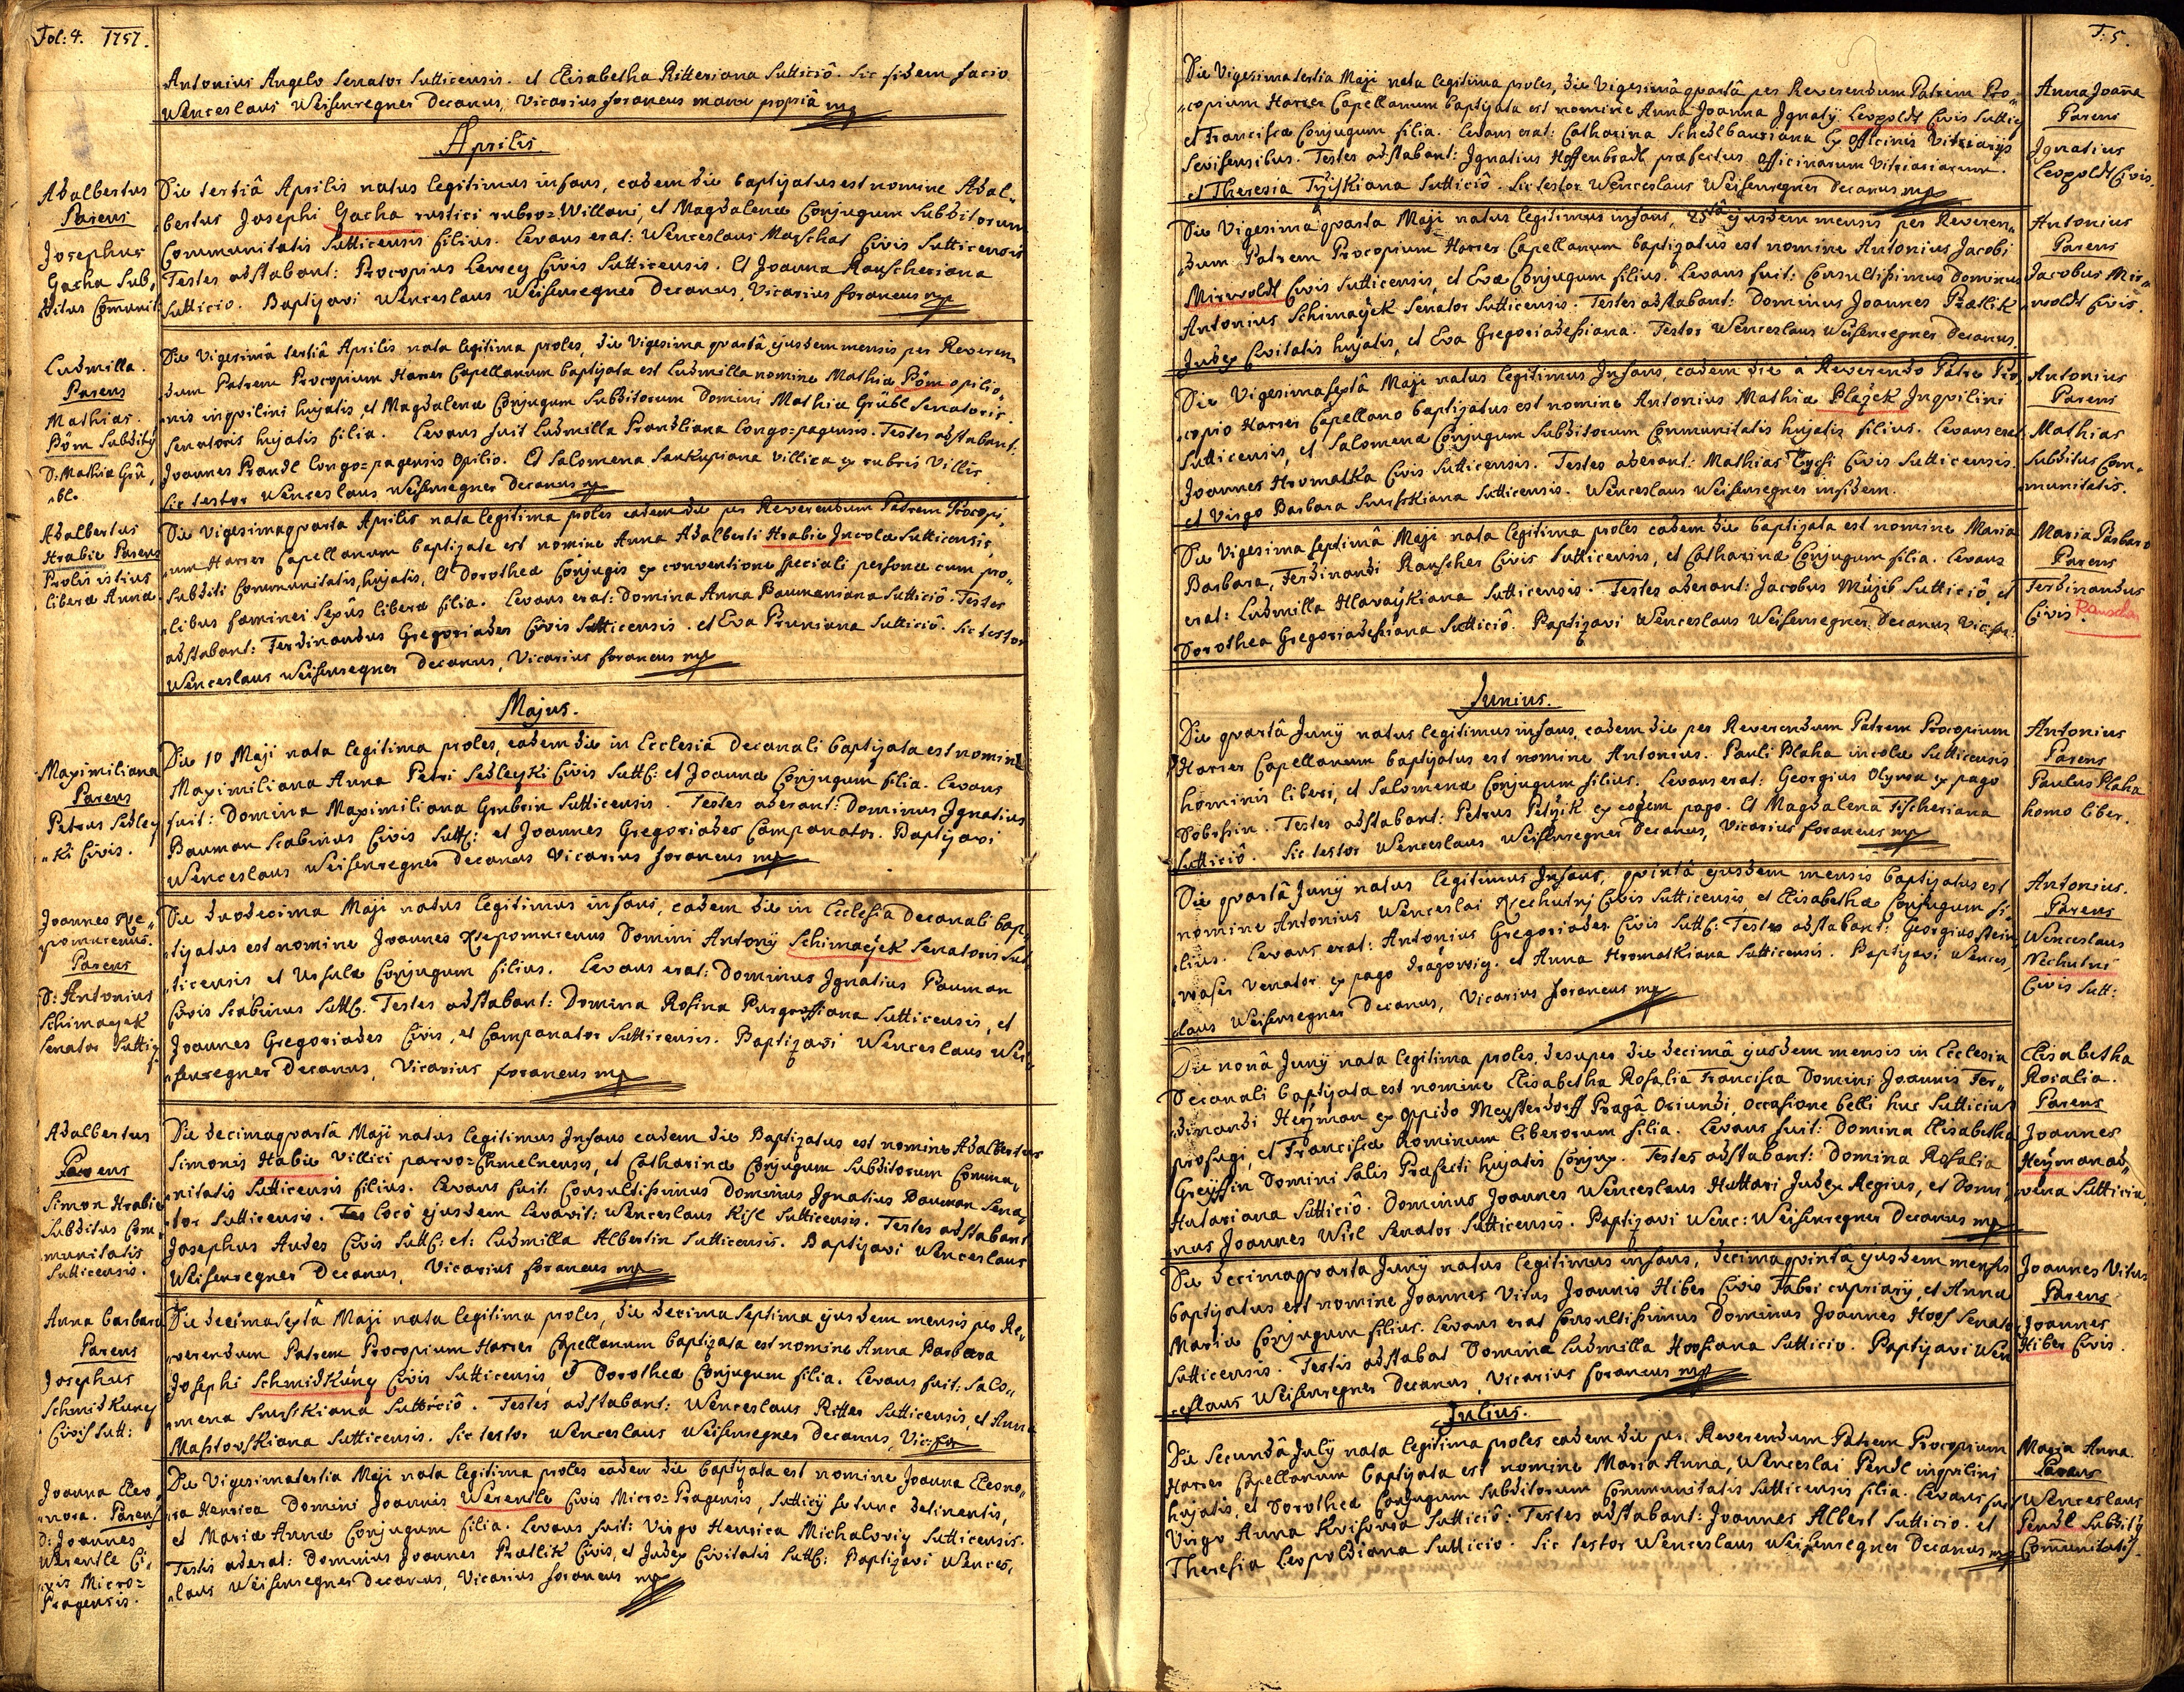 Fol: 4. 1757.
Antonius Angelo Senator Sutticensis. et Elisabetha Ritteriana Sutticiô. Sic fidem facio
Wenceslaus Weisenregner Decanus, Vicarius foraneus manu propriâ mp
Aprilis.
Adalbertus
Parens
Josephus
Gacha Sub,
ditus Comunit:
Die tertiâ Aprilis natus legitimus infans, eadem die baptizatus est nomine Adal„
bertus Josephi Gacha rustici rubro=Willani, et Magdalenæ Conjugum Subditorum
Communitatis Sutticensis filius. Levans erat: Wenceslaus Marschat Civis Sutticensis
Testes adstabant: Procopius Lersey Civis Sutticensis. Et Joanna Rauscheriana
Sutticio. Baptizavi Wenceslaus Weisenregner Decanus, Vicarius foraneus mp
Ludmilla.
Parens
Mathias.
Böm Subdity
D: Mathiæ Grü„
„bl.
Die Vigesimâ tertiâ Aprilis nata legitima proles, die Vigesima quartâ ejusdem mensis per Reveren„
dum Patrem Procopium Harrer Capellanum baptizata est Ludmilla nomine Mathiæ Böm opilio„
nis inquilini hujatis, et Magdalenæ Conjugum Subditorum Domini Mathiæ Grübl Senatoris
Senatoris hujatis filia. Levans fuit Ludmilla Prandliana longo=pagensis. Testes adstabant:
Joannes Prandl longo=pagensis opilio. Et Salomena Saukupiana villica ex rubris Villis
Sic testor Wenceslaus Weisenregner Decanus mp
Adalbertus
Hrabie Parens
Prolis istius
liberæ Anna
Die Vigesimaquarta Aprilis nata legitima proles eadem die per Reverendum Patrem Procopi„
um Harrer Capellanum baptizata est nomine Anna Adalberti Hrabie Incolæ Sutticensis,
Subditi Communitatis hujatis, Et Dorotheæ Conjugis ex conventione speciali personæ cum pro„
„libus fæminei Sexûs liberæ filia. Levans erat: Domina Anna Baumaniana Sutticiô. Testes
adstabant: Ferdinandus Gregoriades Civis Sutticensis. et Eva Pruniana Sutticiô. Sic testor
Wenceslaus Weisenregner Decanus, Vicarius foraneus mp
Majus.
Maximiliana
Parens
Petrus Sedley
„ki Civis.
Die 10 Maji nata legitima proles, eadem die in Ecclesiâ Decanali baptizata est nomine
Maximiliana Anna Petri Sedleyki Civis Sutt: et Joannæ Conjugum filia. Levans
fuit: Domina Maximiliana Grubrin Sutticensis. Testes aderant: Dominus Ignatius
Bauman Scabinus Civis Sutt: et Joannes Gregoriades Campanator. Baptizavi
Wenceslaus Weisenregner Decanus Vicarius foraneus mp
Joannes Ne„
pomucenus.
Parens
D: Antonius
Schimaczek
Senator Suttiz
Die duodecima Maji natus legitimus infans, eadem die in Ecclesia Decanali bap„
tizatus est nomine Joannes Nepomucenus Domini Antonÿ Schimaczek Senatoris Sut„
ticensis et Ursulæ Conjugum filius. Levans erat: Dominus Ignatius Bauman
Civis Scabinus Sutt. Testes adstabant: Domina Rosina Purgrossiana Sutticensis, et
Joannes Gregoriades Civis, et Campanator Sutticensis. Baptizavi Wenceslaus Wei„
senregner Decanus, Vicarius foraneus mp
Adalbertus
Parens
Simon Hrabie
Subditus Com„
munitatis
Sutticensis.
Die decimaquartâ Maji natus legitimus Infans eadem die Baptizatus est nomine Adalbertus
Simonis Habie Villici parvo=Chmelnensis, et Catharinæ Conjugum Subditorum Commu„
nitatis Sutticensis filius. Levans fuit: Consultissimus Dominus Ignatius Bauman Sena„
tor Sutticensis. Tes loco ejusdem levavit: Wenceslaus Kisl Sutticensis. Testes adstabant
Josephus Audes Civis Sutt: et: Ludmilla Albertin Sutticensis. Baptizavi Wenceslaus
Weisenregner Decanus, Vicarius foraneus mp
Anna barbara
Parens
Josephus
Schmidkuney
Civis Sutt:
Die decimasextâ Maji nata legitima proles, die decima septima ejusdem mensis per Re„
„verendum Patrem Procopium Harrer Capellanum baptizata est nomine Anna Barbara
Josephi Schmidkuney Civis Sutticensis, et Dorotheæ Conjugum filia. Levans fuit: Salo„
mena Smrskiana Sutticiô. Testes adstabant: Wenceslaus Ritter Sutticensis, et Anna
Mastovskiana Sutticensis. Sic testor Wenceslaus Weisenregner Decanus, Vic: for
Joanna Eleo„
„nora. Parens
D: Joannes
Werentle Ci„
vis Micro=
Pragensis.
Die Vigesimatertia Maji nata legitima proles eadem die baptizata est nomine Joanna Eleono„
„ra Henrica Domini Joannis Werentle Civis Micro=Pragensis, Sutticÿ pro tunc detinentis,
et Mariæ Annæ Conjugum filia. Levans fuit: Virgo Henrica Michaloviz Sutticensis.
Testis aderat: Dominus Joannes Prætlik Civis, et Judex Civitatis Sutt: Baptizavi Wences„
„laus Weisenregner Decanus, Vicarius foraneus mp
F: 5.
Die Vigesimatertia Maji nata legitima proles, die Vigesimâ quartâ per Reverendum Patrem Pro„
„copium Harrer Capellanum baptizata est nomine Anna Joanna Ignatÿ Leopoldt Civis Suttic
et Franciscæ Conjugum filia. Levans erat: Catharina Schedlbauriana Ex officinis Vitriarÿs
Seviensibus. Testes adstabant: Ignatius Hoffenbradl præfectus officinarum Vitriariarum.
et Theresia Tyzskiana Sutticiô. Sic testor Wenceslaus Weisenregner Decanus mp
Anna Joana
Parens
Ignatius
Leopoldt Civis.
Die Vigesimaquarta Maji natus legitimus infans, 25ta ejusdem mensis per Reveren„
„dum Patrem Procopium Harrer Capellanum baptizatus est nomine Antonius Jacobi
Mirwoldt Civis Sutticensis, et Evæ Conjugum filius. Levans fuit: Consultissimus Dominus
Antonius Schimaczek Senator Sutticensis. Testes adstabant: Dominus Joannes Prætlik
Judex Civitatis hujatis, et Eva Gregoriadessiana. Testor Wenceslaus Weisenregner Decanus.
Antonius
Parens
Jacobus Mir„
„woldt Civis.
Die Vigesimasextâ Maji natus legitimus Infans, eadem die â Reverendo Patre Pro„
„copio Harrer Capellano baptizatus est nomine Antonius Mathiæ Blazek Inquilini
Sutticensis, et Salomenæ Conjugum Subditorum Communitatis hujatis filius. Levans erat
Joannes Hromatka Civis Sutticensis. Testes aderant: Mathias Tychi Civis Sutticensis.
et Virgo Barbara Smrskiana Sutticensis. Wenceslaus Weisenregner in fidem.
Antonius
Parens
Mathias
Subditus Com„
munitatis.
Die Vigesima septimâ Maji nata legitima proles eadem die baptizata est nomine Maria
Barbara, Ferdinandi Rauscher Civis Sutticensis, et Catharinæ Conjugum filia. Levans
erat: Ludmilla Hlavaykiana Sutticensis. Testes aderant: Jacobus Muzib Sutticiô, et
Dorothea Gregoriadessiana Sutticiô. Baptizavi Wenceslaus Weisenregner Decanus Vic: for:
Maria Barbara
Parens
Ferdinandus
Civis. Rauscher
Junius.
Die quartâ Junÿ natus legitimus infans, eadem die per Reverendum Patrem Procopium
Harrer Capellanum baptizatus est nomine Antonius. Pauli Blaha incolæ Sutticensis
hominis liberi, et Salomenæ Conjugum filius. Levans erat: Georgius Olywa ex pago
Dobrssin. Testes adstabant: Petrus Petrzik ex eodem pago. Et Magdalena Fischeriana
Sutticiô. Sic testor Wenceslaus Weisenregner Decanus, Vicarius foraneus mp
Antonius
Parens
Paulus Blaha
homo liber.
Die quartâ Junÿ natus legitimus Infans, quintâ ejusdem mensis baptizatus est
nomine Antonius Wenceslai Nechutnj Civis Sutticensis, et Elisabethæ Conjugum fi„
„lius. Levans erat: Antonius Gregoriades Civis Sutt: Testes adstabant: Georgius Stein
„waser Venator ex pago Dragowiz. et Anna Hromatkiana Sutticensis. Baptizavi Wences„
„laus Weisenregner Decanus, Vicarius foraneus mp
Antonius.
Parens
Wenceslaus
Nechutni
Civis Sutt:
Die nonâ Junÿ nata legitima proles, desuper die decimâ ejusdem mensis in Ecclesia
Decanali baptizata est nomine Elisabetha Rosalia Francisca Domini Joannis Fer„
„dinandi Heyman ex oppido Meysterdorff Pragâ Oriundi, occasione belli huc Sutticium
profugi, et Franciscæ hominum liberorum filia. Levans fuit: Domina Elisabetha
Greyssin Domini Salis Præfecti hujatis Conjux. Testes adstabant: Domina Rosalia
Hutariana Sutticiô. Dominus Joannes Wenceslaus Huttari Judex Regius, et Domi„
nus Joannes Wirl Senator Sutticensis. Baptizavi Wenc: Weisenregner Decanus mp
Elisabetha
Rosalia.
Parens
Joannes
Heyman ad„
vena Sutticiu
Die decimaquarta Junÿ natus legitimus infans, decimaquintâ ejusdem mensis
baptizatus est nomine Joannes Vitus Joannis Hiber Civis Fabri cupriarÿ, et Anna
Mariæ Conjugum filius. Levans erat Consultissimus Dominus Joannes Hoof Senator
Sutticensis. Testis adstabat Domina Ludmilla Hoofiana Sutticio. Baptizavi Wen
ceslaus Weisenregner Decanus, Vicarius foraneus mp
Joannes Vitus
Parens
Joannes
Hiber Civis.
Julius.
Die Secundâ Julÿ nata legitima proles eadem die per Reverendum Patrem Procopium
Harrer Capellanum baptizata est nomine Maria Anna, Wenceslai Pendl inquilini
hujatis, et Dorotheæ Conjugum Subditorum Communitatis Sutticensis filia. Levans fuit
Virgo Anna Sutticiô: Testes adstabant: Joannes Albert Sutticio. et
Theresia Leopoldiana Sutticio. Sic testor Wenceslaus Weisenregner Decanus mp
Maria Anna
Parens
Wenceslaus
Pendl Subditÿ
Comunitatis.